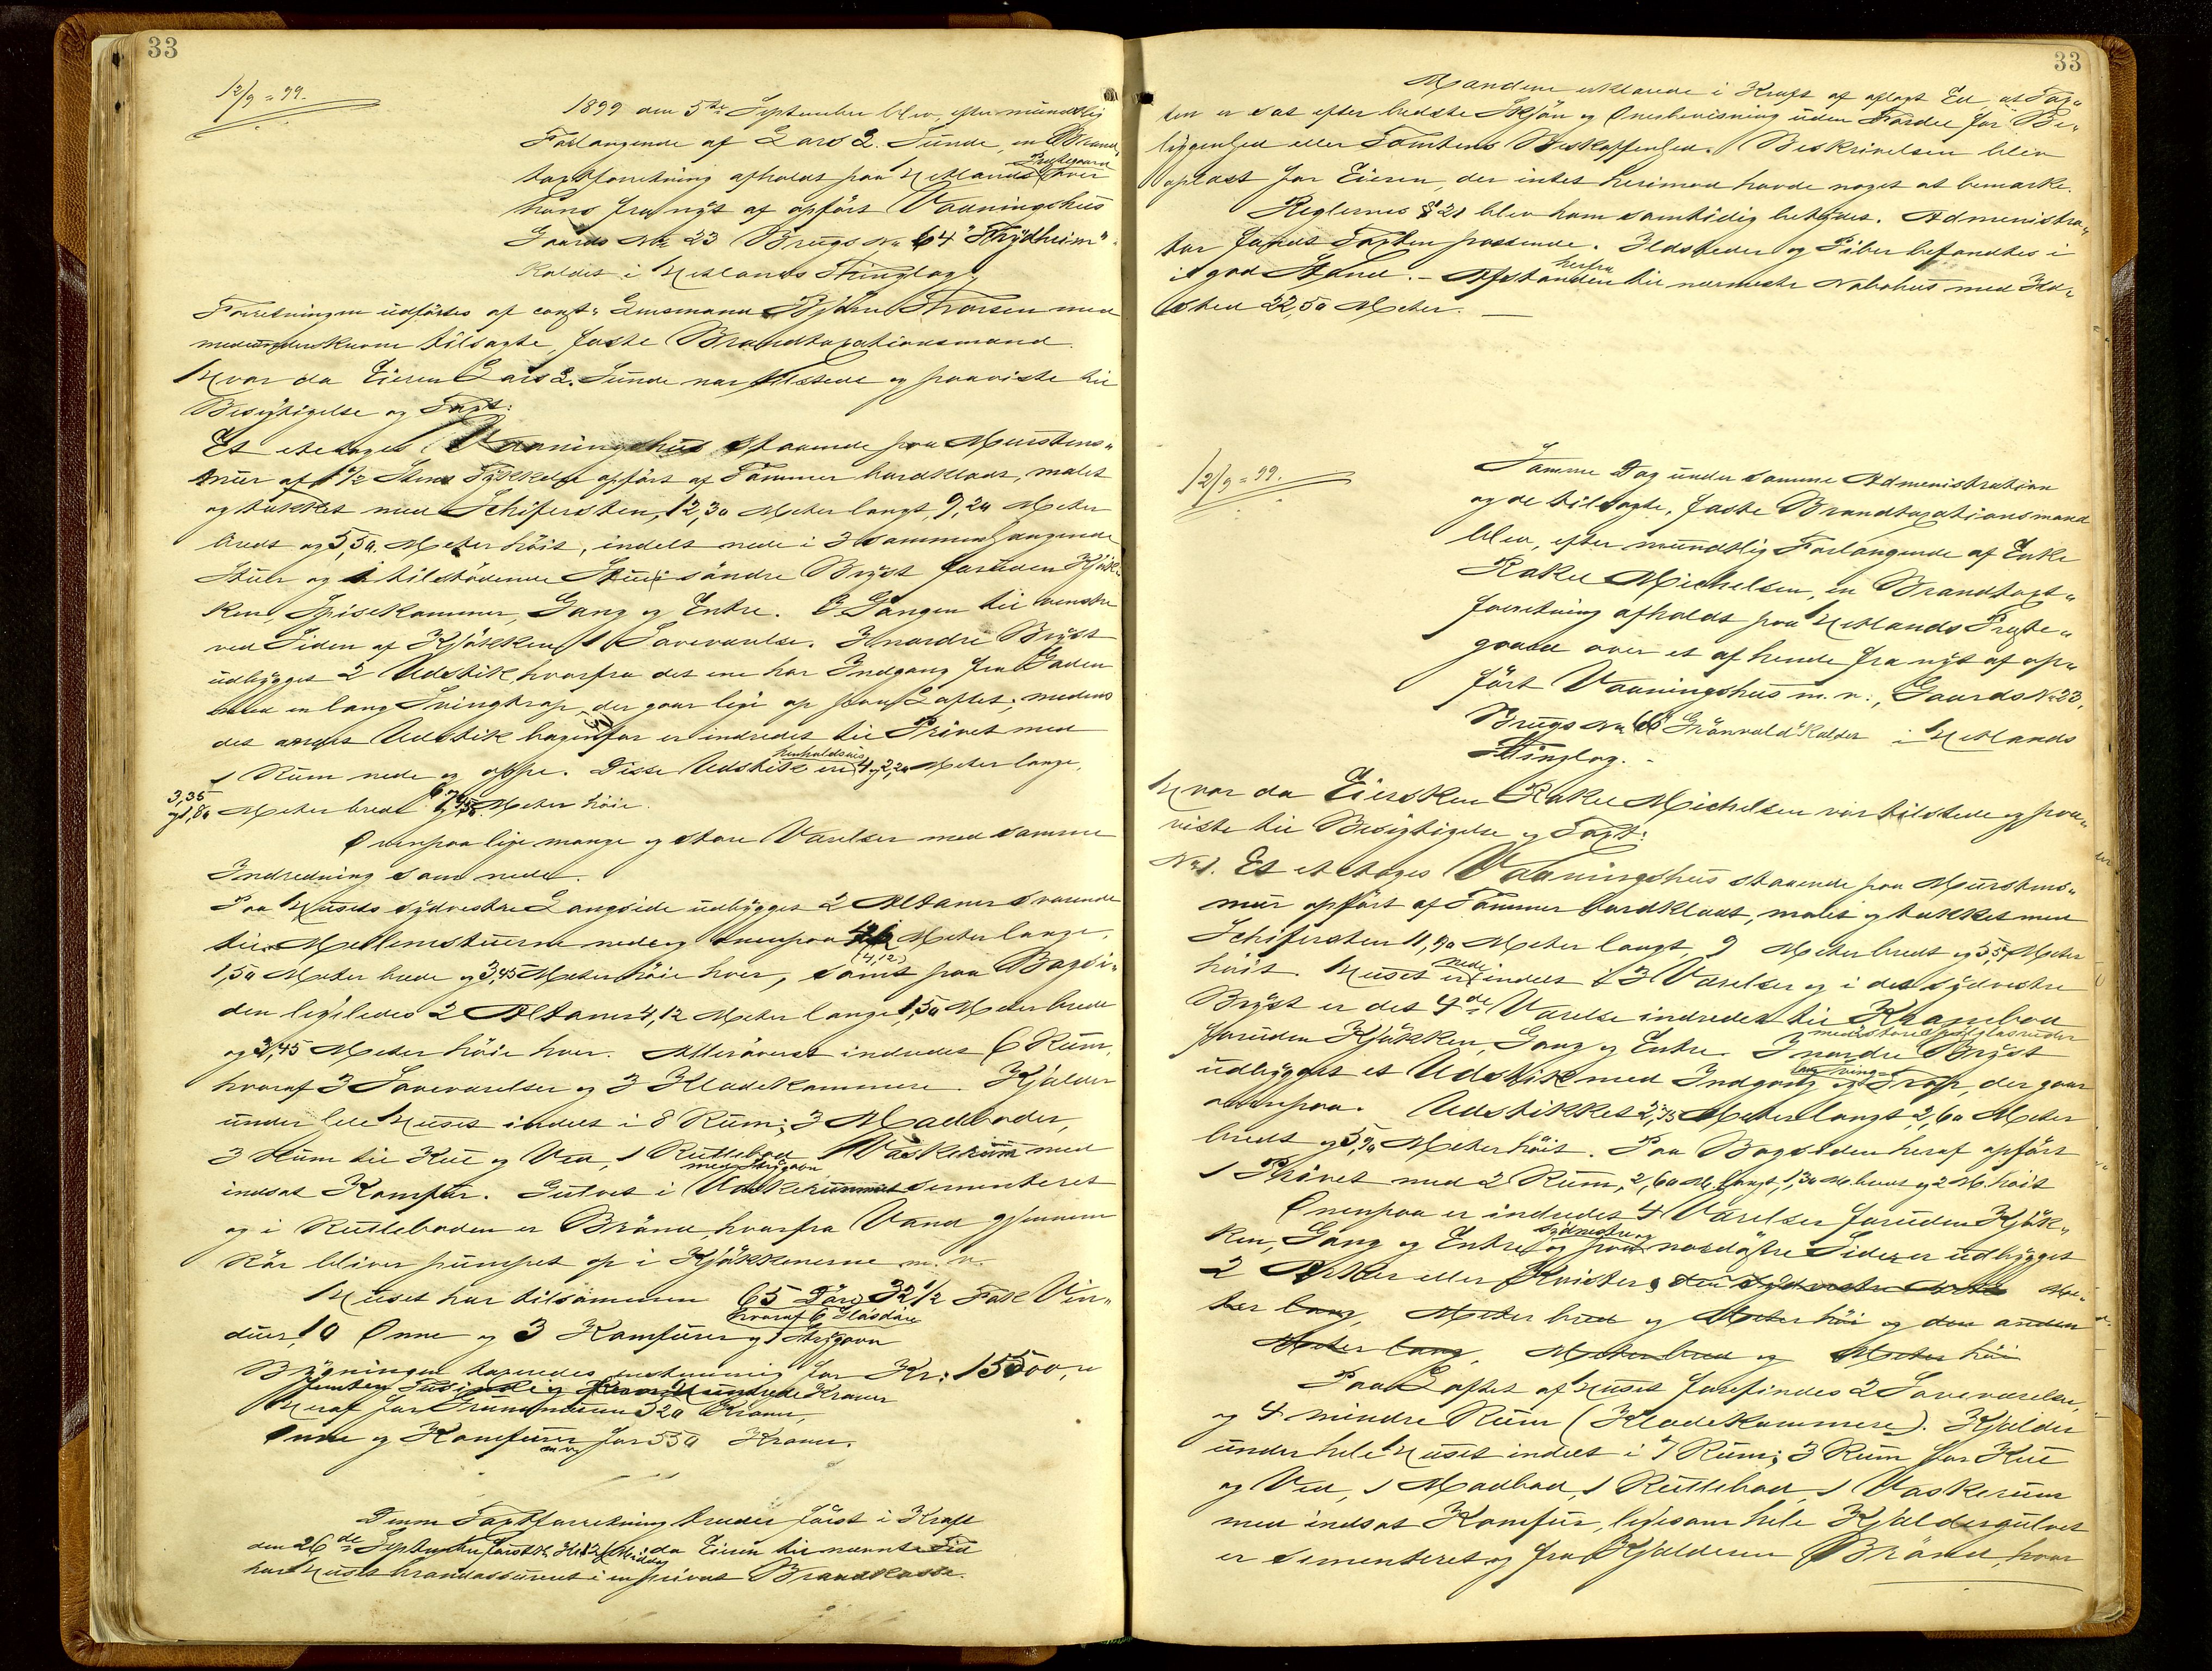 33
12/9 = 99.
1899 den 5te September blev, efter mundtlig
Forlangende af Lars L. Sunde, en Brand„
taxtforretning afholdt paa Hetlands Prestegaard over
hans fra nyt af opført Vaaningshus
Gaards No 23 Brugs No 64 "Frydheim"
kaldet i Hetlands Thinglag.
Forretningen udførtes af const: Lensmand Bjørn Thorsen med
medunderskrevne tilsagte, faste Brandtaxationsmænd.
Hvor da Eieren Lars L. Sunde var tilstede og paaviste til
Besigtigelse og Taxt:
Et etetages Vaaningshus staaende paa Murstens„
mur af 1 1/2 Stens Tykkelse opført af Tømmer bordklædt, malet
og tækket med Schifersten, 12,30 Meter langt, 9,20 Meter
bredt og 5,50 Meter høit, indelt nede i 3 sammenhængende
Stuer og 1 tilstødende Stue i søndre Bryst foruden Kjøk„
ken, Spisekammer, Gang og Entre. I Gangen til venstre
ved Siden af Kjøkken 1 Soveværelse. I nordre Bryst
udbygget 2 Udstik, hvorfra det ene har Indgang fra Gaden
med en lang Svingtrap, der gaar lige op paa Loftet, medens
det andet Udstik bagenfor er indredet til Privet med
1 Rum nede og oppe. Disse Udstik ere henholdsvis 4 og 2,20 Meter lange,
3,35 og 1,80 Meter brede Meter høie.
Ovenpaa lige mange og store Værelser med samme
Indredning som nede.
Paa Husets sydvestre Langside udbygget 2 Altaner svarende
til Mellemstuerne nede og ovenpaa (4,12) Meter lange,
1,50 Meter brede og 3,45 Meter høie hver, samt paa Bagsi„
den ligeledes 2 Altaner 4,12 Meter lange 1,50 Meter brede
og 3,45 Meter høie hver. Alleröverst indredet 6 Rum,
hvoraf 3 Soveværelser og 3 Klædekammere. Kjælder
under hele Huset indelt i 8 Rum; 3 Madboder,
3 Rum til Kul og Ved, 1 Rullebod 1 Vaskerum med
indsat Komfur. med Strygovn Gulvet i Vaskerummet sementeret
og i Rulleboden er Brønd, hvorfra Vand gjennem
Rør bliver pumpet op i Kjøkkenerne m. v.
Huset har tilsammen 65 Døre, hvoraf 6 Glasdøre 32 1/2 Fak Vin„
duer, 10 Ovne og 3 Komfurer og 1 Strygovn
Bygningen taxeredes enstemmig for Kr: 15500,00
femten Tusinde og fem Hundrede Kroner
Heraf for Grundmuren 320 Kroner,
Ovne og Komfurer m. v. for 550 Kroner.
Denne Taxtforretning træder først i Kraft
den 26de September førstk. Kl 12 Middag, da Eieren til nævnte Tid
har Huset brandassureret i en privat Brandkasse.
33
Mændene erklærede i Kraft af aflagt Ed, at Tax„
ten er sat efter bedste Skjøn og Overbevisning uden Fordel for Be„
liggenhed eller Tomtens Beskaffenhed. Beskrivelsen blev
oplæst for Eieren, der intet herimod havde noget at bemærke.
Reglernes § 21 blev ham samtidig betydet. Administra„
tor fandt Taxten passende. Ildsteder og Piber befandtes i
i god Stand. - Afstanden herfra til nærmeste Nabohus med Ild„
sted 22,50 Meter.
12/9 = 99.
Samme Dag under samme Administration
og de tilsagte, faste Brandtaxationsmænd
blev, efter mundtlig Forlangende af Enke
Rakel Michelsen, en Brandtaxt„
forretning afholdt paa Hetlands Preste„
gaard over et af hende fra nyt af op„
ført Vaaningshus m. v., Gaards No 23,
Brugs No "Grønvold" kaldet i Hetlands
Thinglag. -
Hvor da Eiersken Rakel Michelsen var tilstede og paa„
viste til Besigtigelse og Taxt:
No 1. Et et etages Vaaningshus staaende paa Murstens„
mur opført af Tømmer bordklædt, malet og tækket med
Schifersten 11,90 Meter langt, 9 Meter bredt og 5,55 Meter
høit. Huset er nede indelt i 3 Værelser og i det sydvestre
Bryst er det 4de Værelse indredet til Krambod
med store Speilglasruder
foruden Kjøkken, Gang og Entre. I nordre Bryst
udbygget et Udstik med Indgang og lang Sving-Trap, der gaar
ovenpaa. Udstikket 2,75 Meter langt 2,60 Meter
bredt og 5,90 Meter høit. Paa Bagsiden heraf opført
1 Privet med 2 Rum, 2,60 M. langt, 1,30 M. bredt og 2 M. høit
Ovenpaa er indredet 4 Værelser foruden Kjøk„
ken, Gang og Entre, og paa sydvestre og nordøstre Sider er udbygget
2 Arker eller Kvister, den sydvestre Me„
ter lang, Meter bred og Meter høi og den anden
Meter lang, Meter bred og Meter høi
Paa Loftet af Huset forefindes 2 Soveværelser,
og 4 mindre Rum (Klædekammere). Kjælder
under hele Huset indelt i 7 Rum; 3 Rum for Kul
og Ved, 1 Madbod, 1 Rullebod, 1 Vaskerum
med indsat Komfur, ligesom hele Kjældergulvet
er sementeret og fra Kjælderen Brønd, hvor